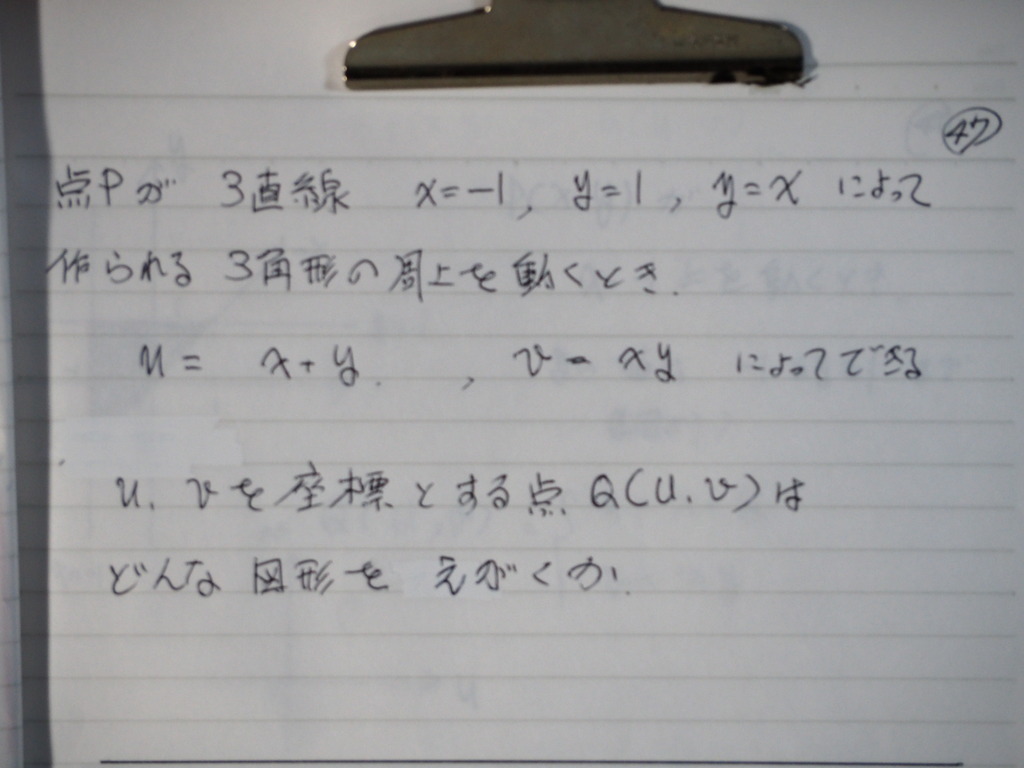 47
点Pが 3直線 x=-1, y=1, y=x によって
作られる 3角形の周上を動くとき.
u= x+y. , v=xy によってできる
u, vを座標とする点 Q(u,v)は
どんな図形を えがくか.